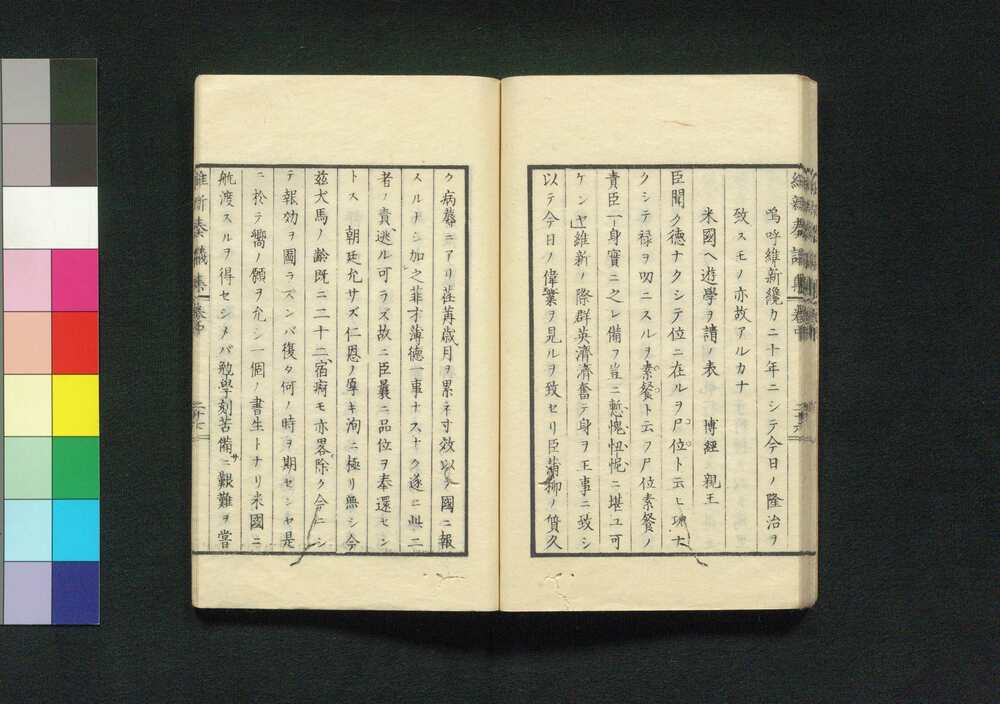 嗚呼維新纔カニ十年ニシテ今日ノ隆治ヲ
致スモノ亦故アルカナ
米國ヘ遊學ヲ請ノ表 博經親王
臣聞ク德ナクシテ位ニ在ルヲ尸位ト云ヒ功ナ
クシテ祿ヲ叨ニスルヲ素餐ト云フ尸位素餐ノ
責臣一身實ニ之レ備フ豈ニ慙愧忸怩ニ堪ユ可
ケンヤ維新ノ際群英濟濟奮テ身ヲ王事ニ致シ
以テ今日ノ偉業ヲ見ルヲ致セリ臣蒲柳ノ質久
ク病蓐ニアリ荏苒歲月ヲ累ネ寸效以テ國ニ報
スルナシ加之菲才薄德一事ナスナク遂ニ此二
者ノ責逃ル可ラズ故ニ臣曩ニ品位ヲ奉還セン
トス 朝廷允サズ仁恩ノ厚キ洵ニ極リ無シ今
茲犬馬ノ齡既ニ二十二宿痾モ亦畧除ク今ニシ
テ報効ヲ圖ラズンバ復タ何ノ時ヲ期センヤ是
ニ於テ嚮ノ願ヲ允シ一個ノ書生トナリ米國ニ
航渡スルヲ得セシメバ勉學刻苦備サニ艱難ヲ嘗
維新奏議集 卷中 二十七